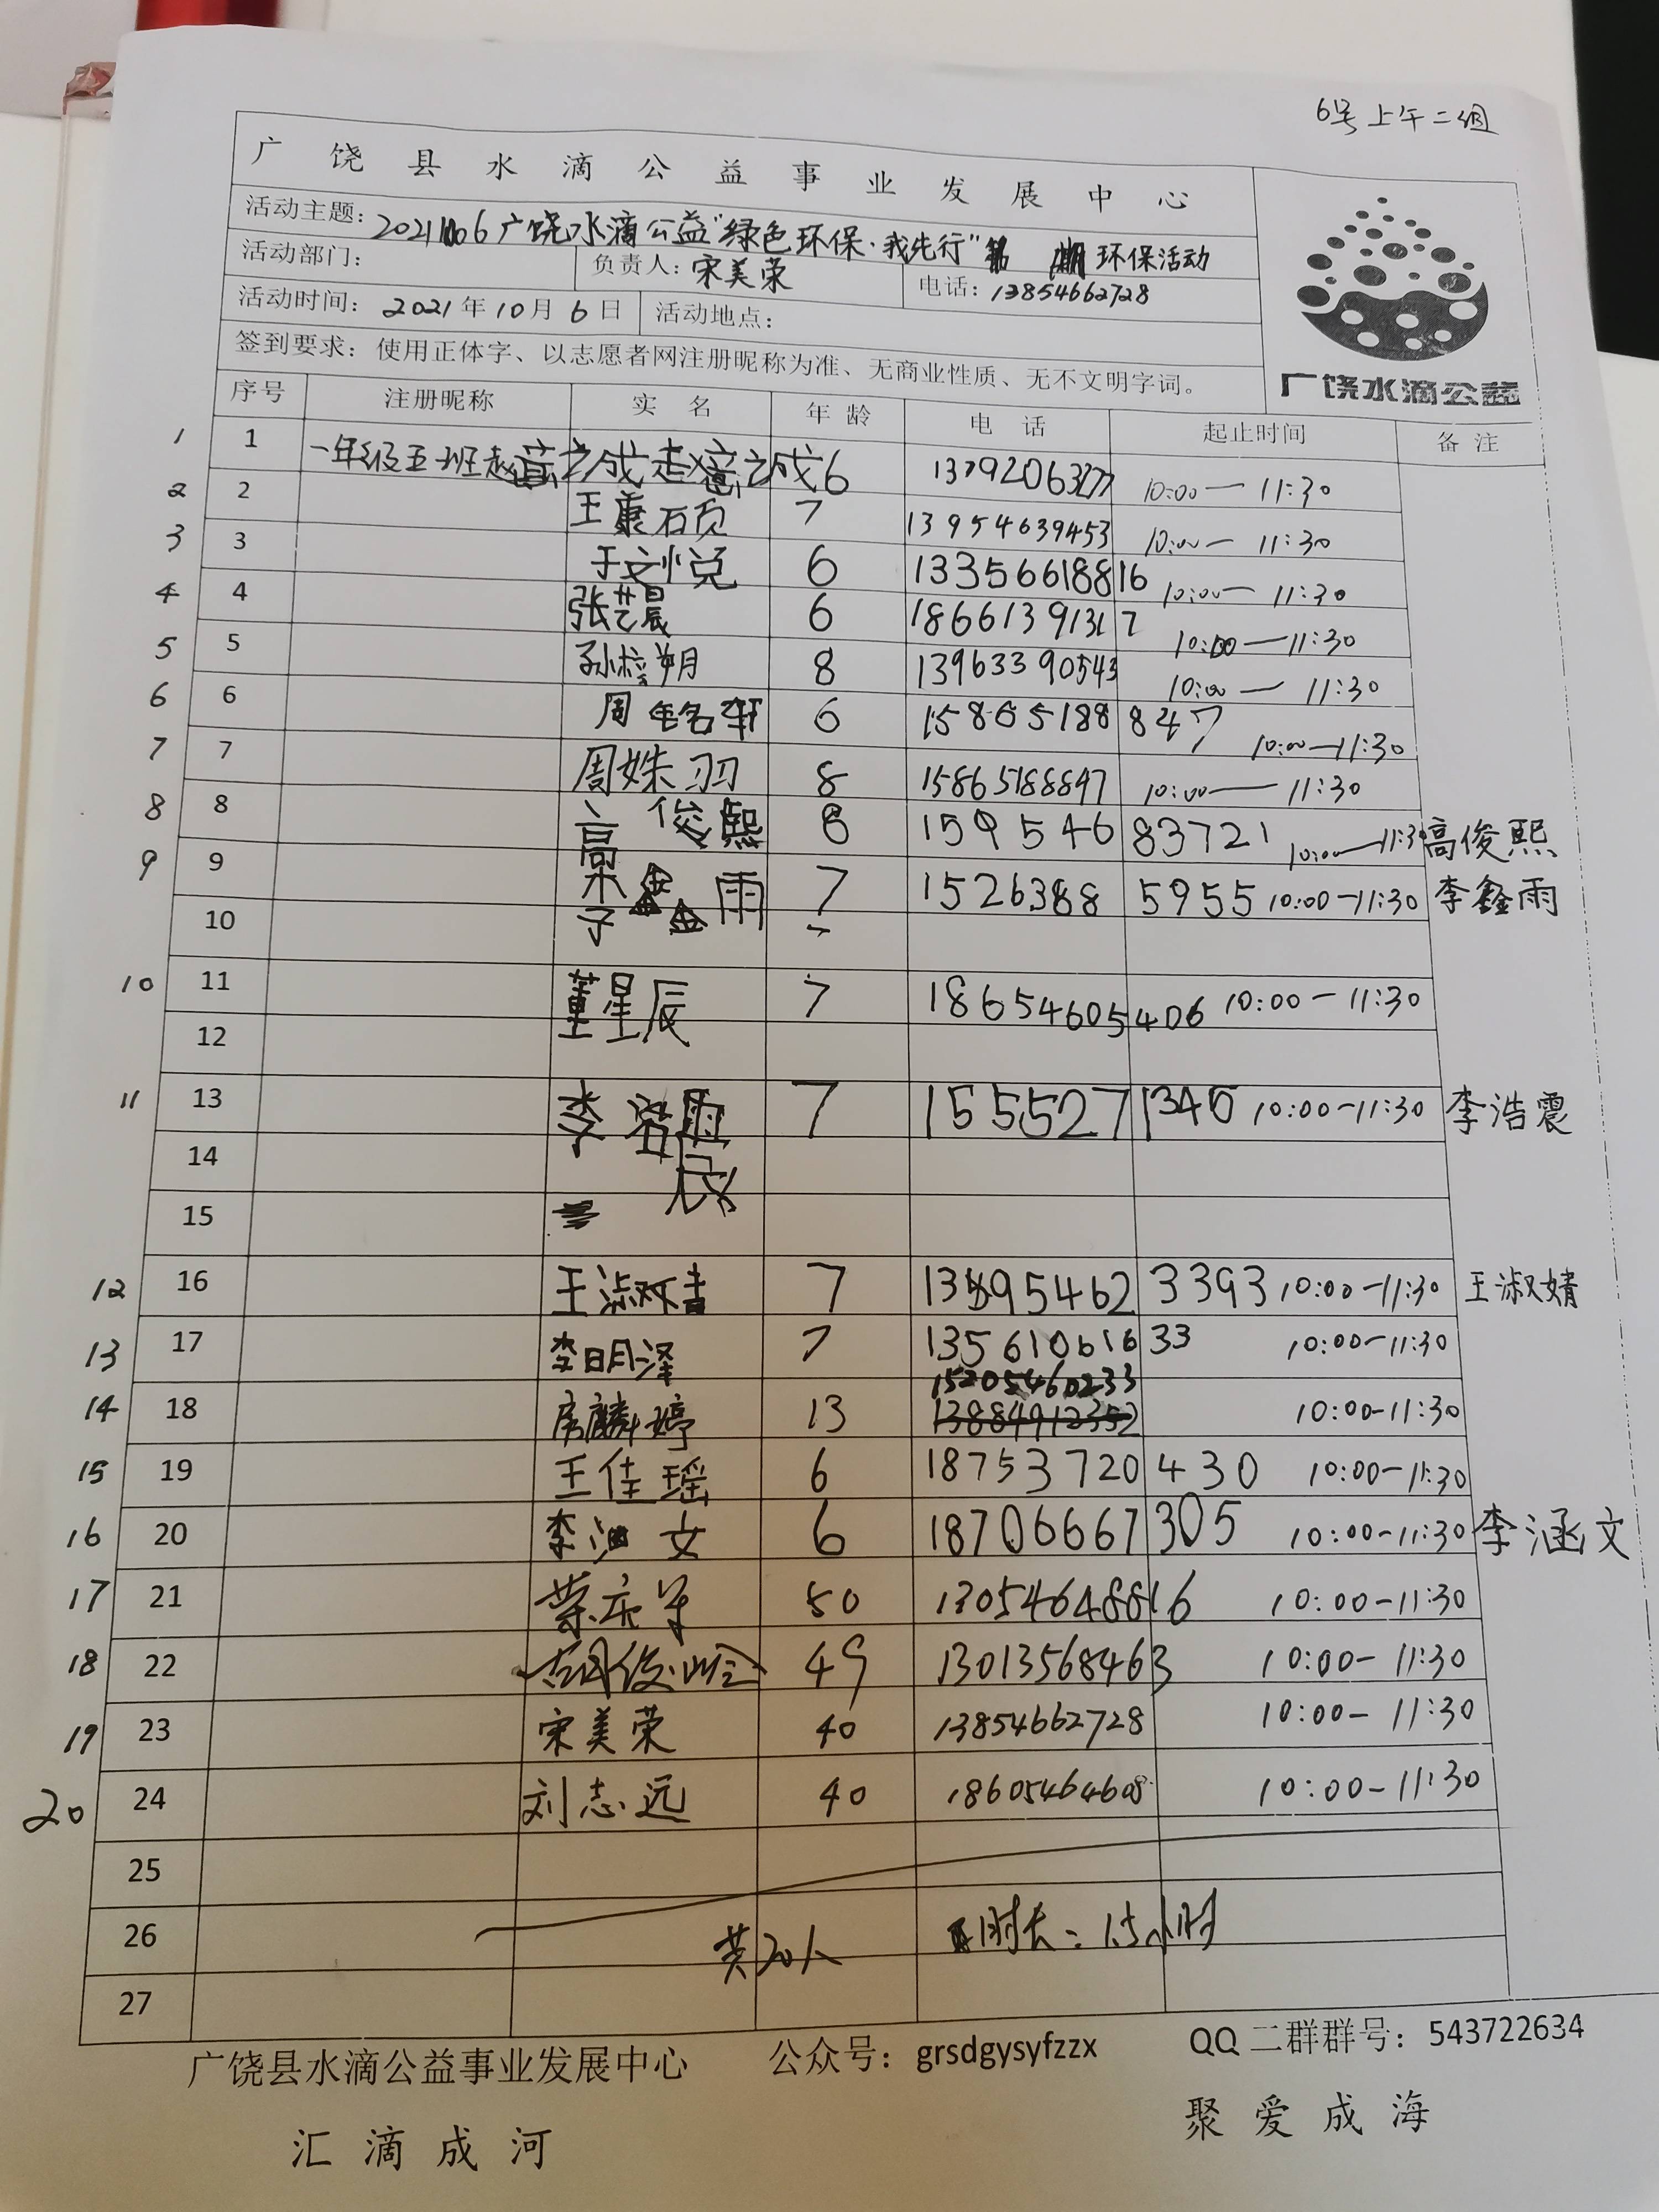 6号上午二组
广饶县水滴公益事业发展中心
活动主题：20211006广饶水滴公益"绿色环保·我先行"第 期环保活动
活动部门： 负责人：宋美荣 电话：13854662728
活动时间：2021年10月6日 活动地点：
签到要求：使用正体字、以志愿者网注册昵称为准、无商业性质、无不文明字词。
广饶水滴公益
序号 注册昵称 实名 年龄 电话 起止时间 备注
1 1 一年级五班赵 6 10:00—11:30
2 2 王康硕 7 13954639453 10:00—11:30
3 3 于文悦 6 13356618816 10:00—11:30
4 4 张艺晨 6 18661391317 10:00—11:30
5 5 孙梓朔 8 13963390543 10:00—11:30
6 6 周铭轩 6 15865188847 10:00—11:30
7 7 周姝羽 8 15865188847 10:00—11:30
8 8 高俊熙 8 15954683721 10:00—11:30 高俊熙
9 9 李鑫雨 7 15263885955 10:00-11:30 李鑫雨
10
10 11 董星辰 7 18654605406 10:00-11:30
12
11 13 李浩震 7 1555271345 10:00-11:30 李浩震
14
15
12 16 王淑婧 7 10:00-11:30 王淑婧
13 17 李明泽 7 13561061633 10:00-11:30
14 18 房麟婷 13 15205460233 13884912352 10:00-11:30
15 19 王佳瑶 6 18753720430 10:00-11:30
16 20 李涵文 6 18706667305 10:00-11:30 李涵文
17 21 荣庆军 50 13054648816 10:00-11:30
18 22 胡俊岭 49 13013568463 10:00-11:30
19 23 宋美荣 40 13854662728 10:00-11:30
20 24 刘志远 40 18605464608 10:00-11:30
25
26 共20人 时长：1.5小时
27
广饶县水滴公益事业发展中心 公众号：grsdgysyfzzx QQ二群群号：543722634
汇滴成河 聚爱成海